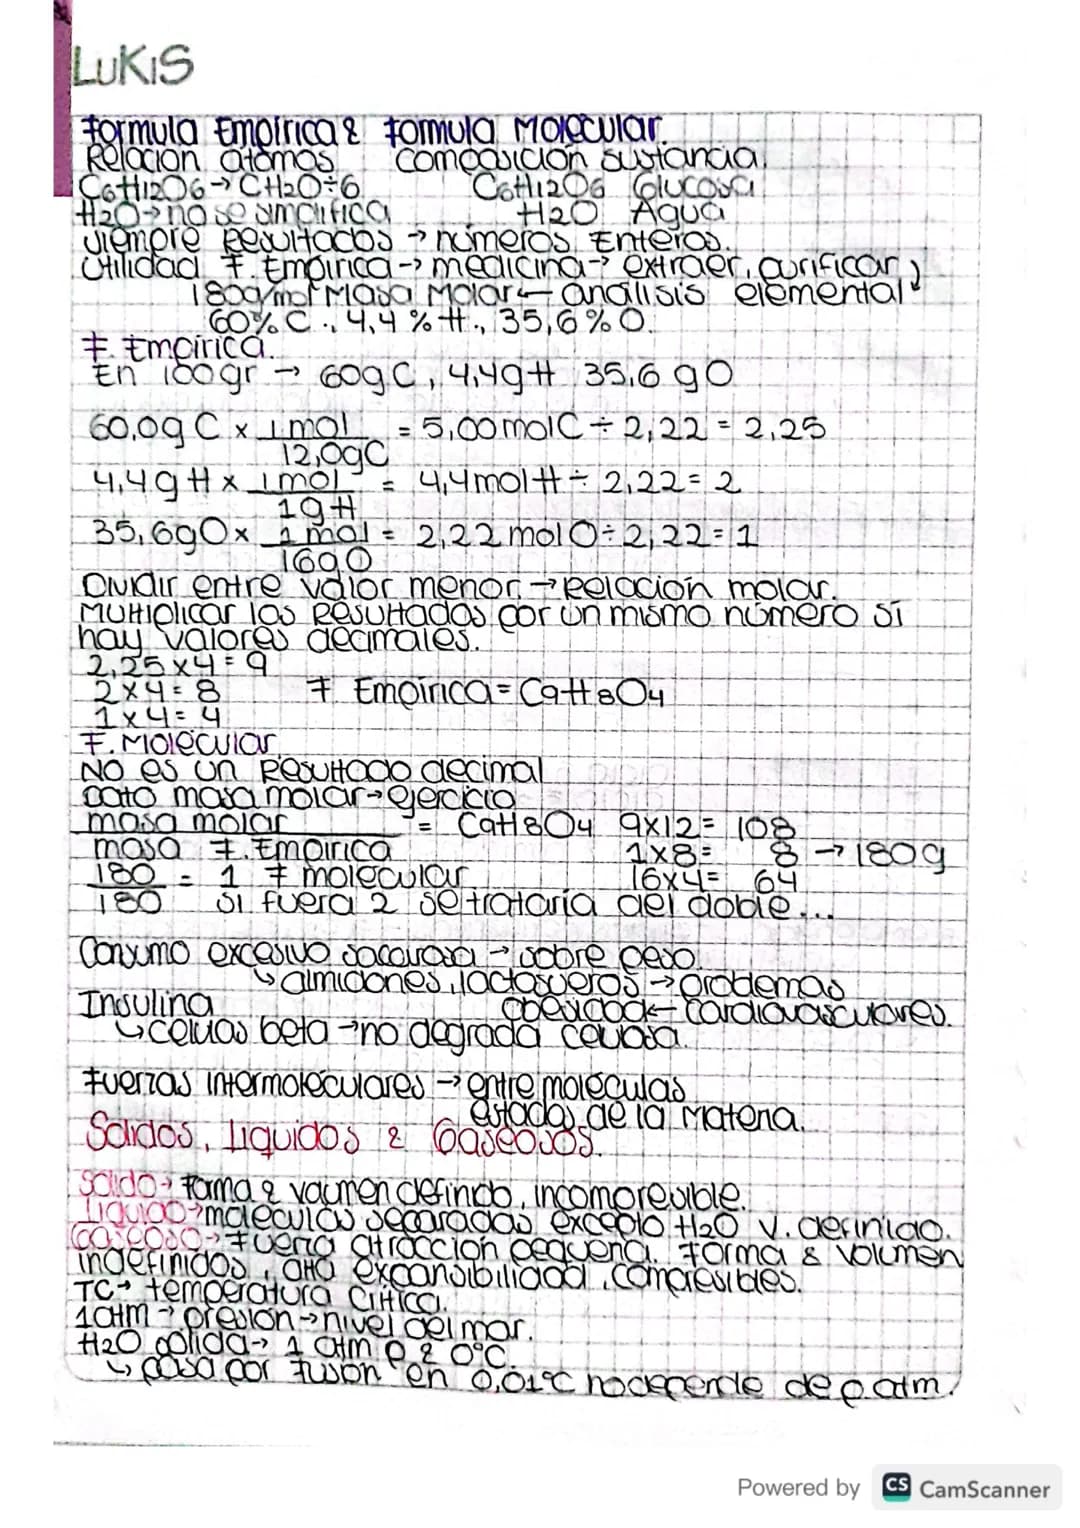 LUKIS
Formula Empírica & Formula Molecular.
Relación átomos Composición sustancia.
C6H12O6→ CH2O÷6 C6H12O6 Glucosa
H2O→no se simplifica H2O Agua
siempre Resultados → números Enteros.
Utilidad F. Empírica→ medicina→ extraer, purificar
180g/mol Masa Molar← análisis elemental
60% C ., 4,4 % H ., 35,6 % O.
F. Empírica.
En 100gr → 60gC, 4,4gH 35,6 gO
60,0g C x 1 mol = 5,00molC ÷ 2,22 = 2,25
12,0gC
4,4gH x 1 mol = 4,4molH ÷ 2,22= 2
1gH
35,6gO x 1 mol = 2,22molO÷2,22=1
16gO
Dividir entre valor menor → Relación molar.
Multiplicar los Resultados por un mismo número si
hay valores decimales.
2,25x4= 9
2x4= 8 F Empírica= C9H8O4
1x4= 4
F. Molecular
NO es un Resultado decimal
Dato masa molar→ejercicio
masa molar = C9H8O4 9x12= 108
masa F. Empírica 1x8= 8 → 180g
180 = 1 F molecular 16x4= 64
180 Si fuera 2 se trataría del doble...
Consumo excesivo sacarosa → sobre peso.
↳ almidones, lactosueros → problemas
Insulina obesidad ← cardiovasculares.
↳ celulas beta → no degrada
Fuerzas intermoleculares → entre moléculas
estados de la Materia.
Solidos, Liquidos & Gaseosos.
Solido→ Forma & volumen definido, incompresible.
Liquido→moleculas separadas excepto H2O V. definido.
Gaseoso→Fuerza atracción pequeña. Forma & volumen
indefinidos, alta expansibilidad, compresibles.
TC→ temperatura Crítica.
1atm → presión → nivel del mar.
H2O solida→ 1 atm p & 0°C.
↳ pasa por fusion en 0,01°C no depende de p atm.
Powered by CS CamScanner